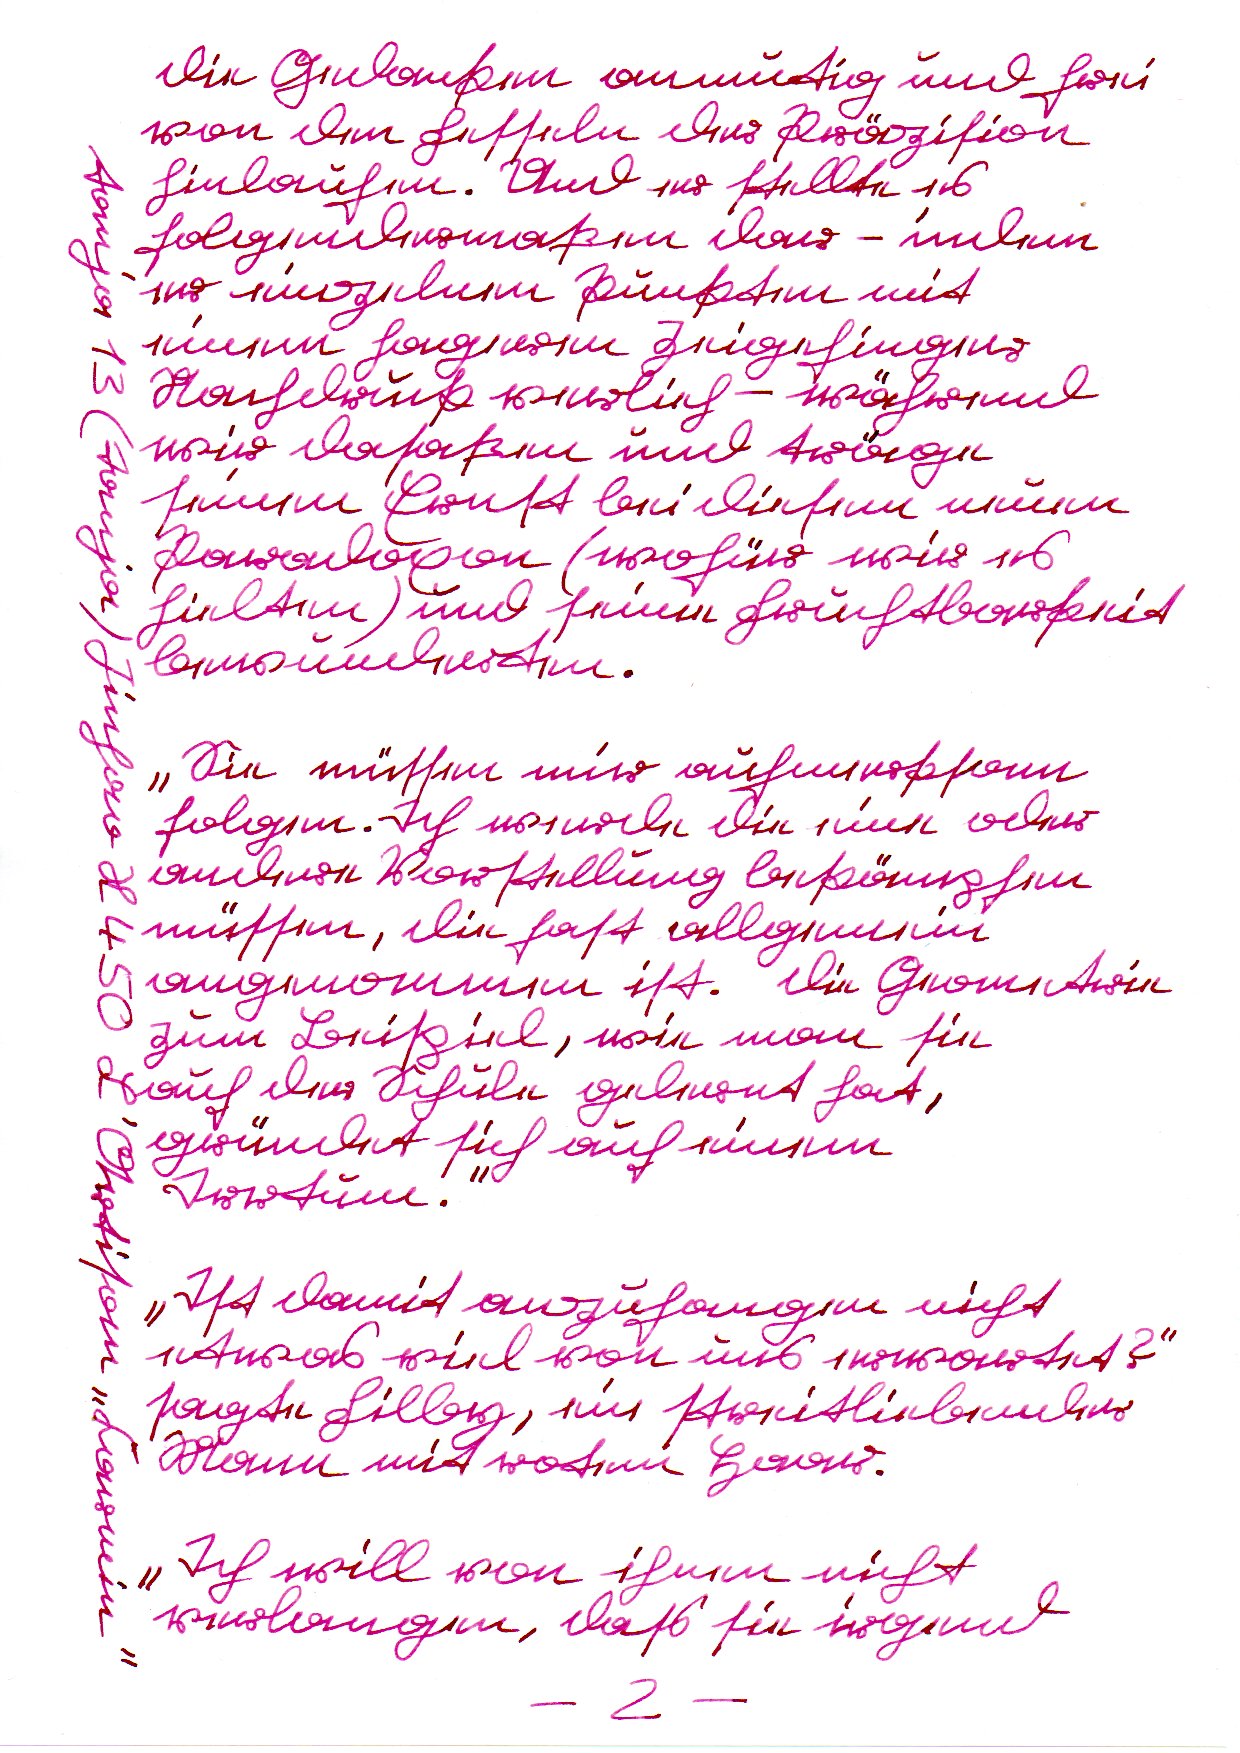 die Gedanken anmutig und frei
von den Fesseln der Präzision
hinlaufen. Und er stellte es
folgendermaßen dar – indem
er einzelnen Punkten mit
einem hageren Zeigefinger
Nachdruck verlieh – während
wir dasaßen und träge
seinen Ernst bei diesem neuen
Paradoxon (wofür wir es
hielten) und seine Fruchtbarkeit
bewunderten.
„Sie müssen mir aufmerksam
folgen. Ich werde die eine oder
andere Vorstellung bekämpfen
müssen, die fast allgemein
angenommen ist. Die Geometrie
zum Beispiel, wie man sie
auf der Schule gelernt hat,
gründet sich auf einem
Irrtum.“
„Ist damit anzufangen nicht
etwas viel von uns erwartet?“
sagte Filby, ein streitliebender
Mann mit rotem Haar.
„Ich will von ihnen nicht
verlangen, daß sie irgend
– 2 –
13 (Tanja) Jinhao X 450 „Carmin“